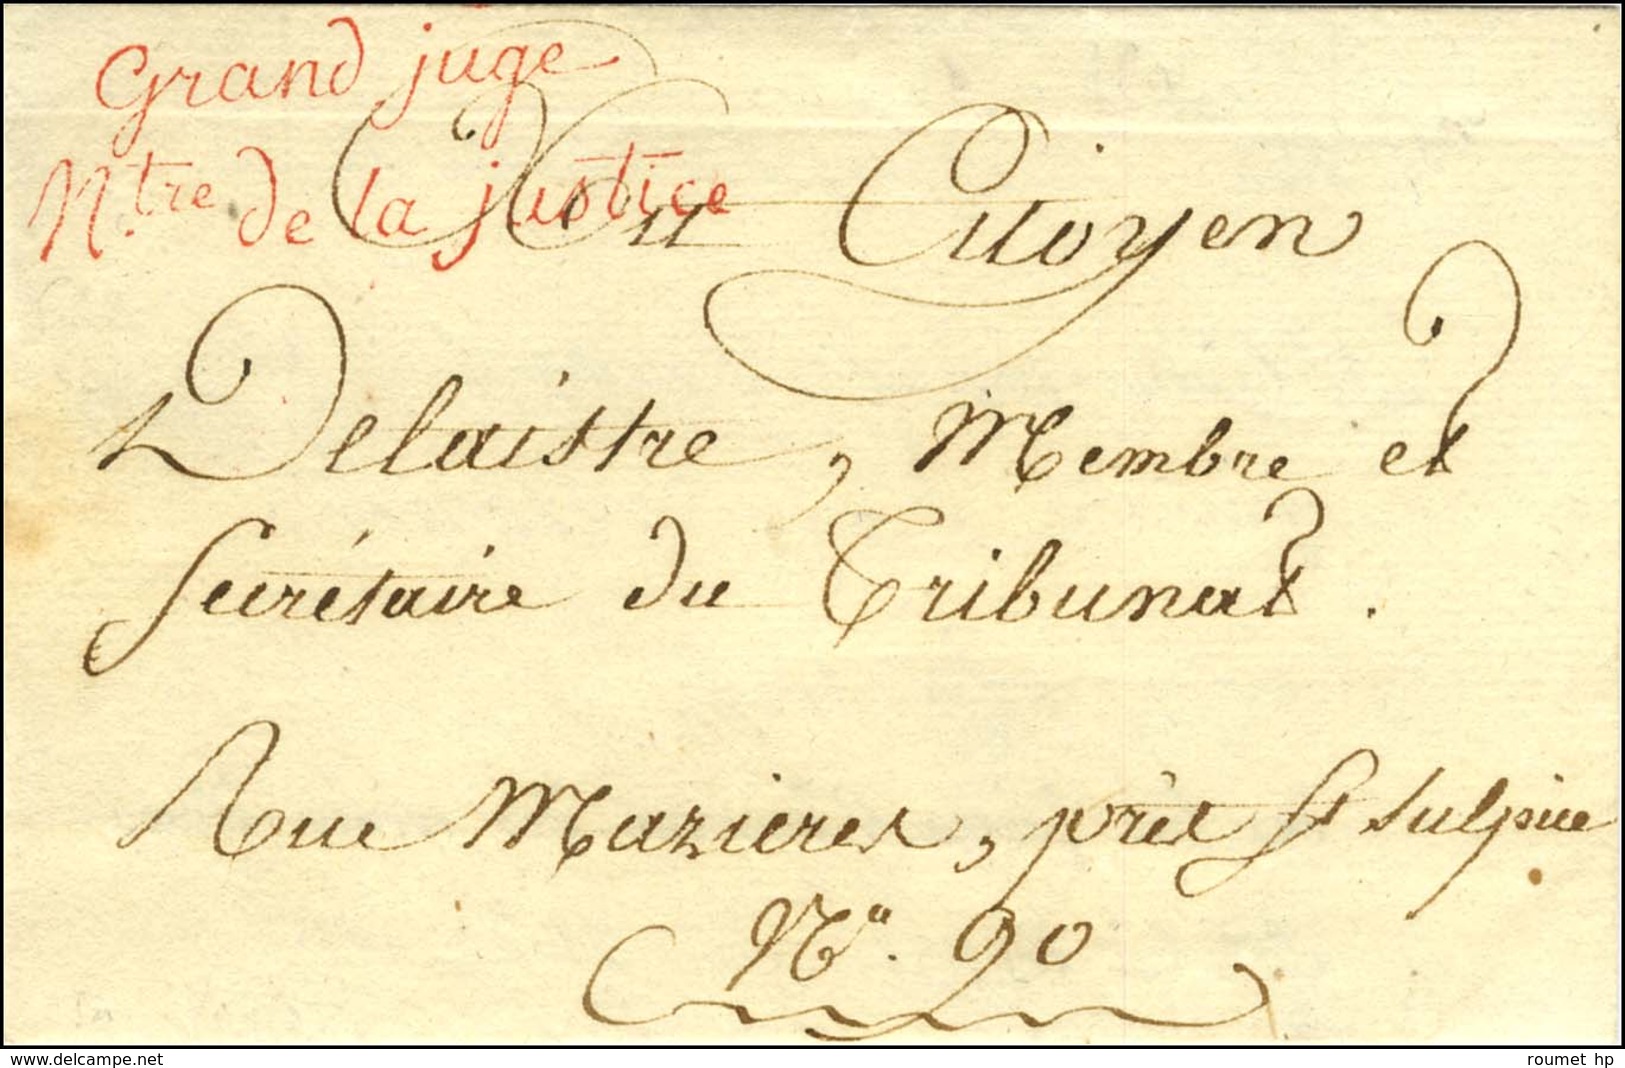 Grand juge
M.tre de la justice
Au Citoyen
Delaistre, Membre et
Secrétaire du Tribunat.
Rue Mazieres, près St Sulpice
N°. 90
www.delcampe.net
roumet hp